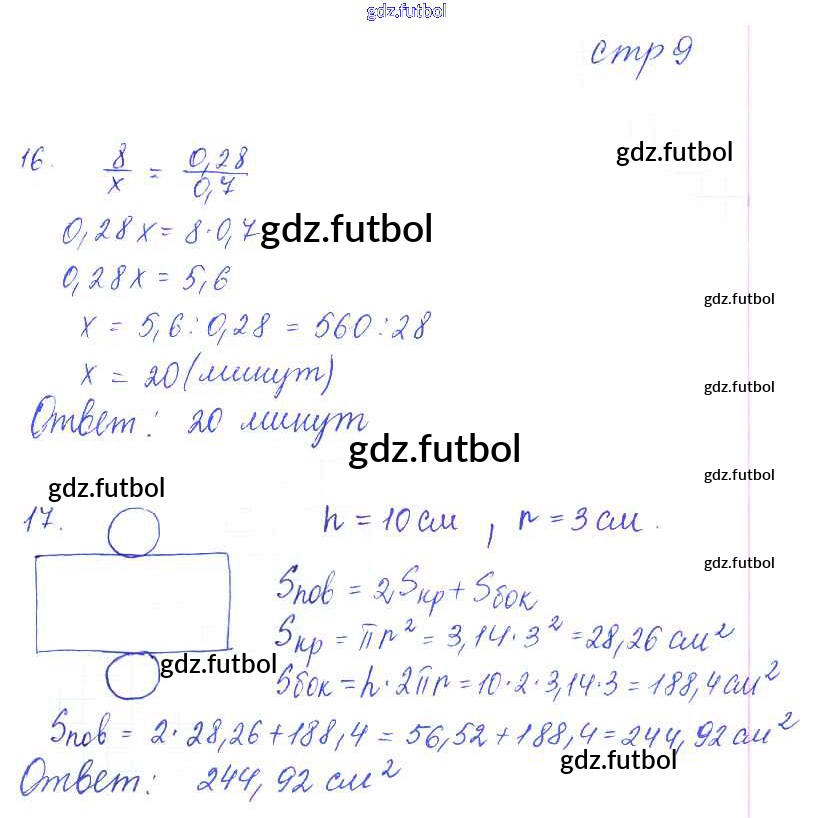 gdz.futbol
стр 9
16. 8/x = 0,28/0,7
gdz.futbol
0,28x = 8·0,7 gdz.futbol
0,28x = 5,6
gdz.futbol
x = 5,6 : 0,28 = 560 : 28
x = 20 (минут)
gdz.futbol
Ответ: 20 минут
gdz.futbol
gdz.futbol
gdz.futbol
17. h = 10 см , r = 3 см.
gdz.futbol
Sпов = 2Sкр + Sбок
Sкр = πr² = 3,14·3² = 28,26 см²
gdz.futbol
Sбок = h·2πr = 10·2·3,14·3 = 188,4 см²
Sпов = 2·28,26 + 188,4 = 56,52 + 188,4 = 244,92 см²
gdz.futbol
Ответ: 244,92 см²